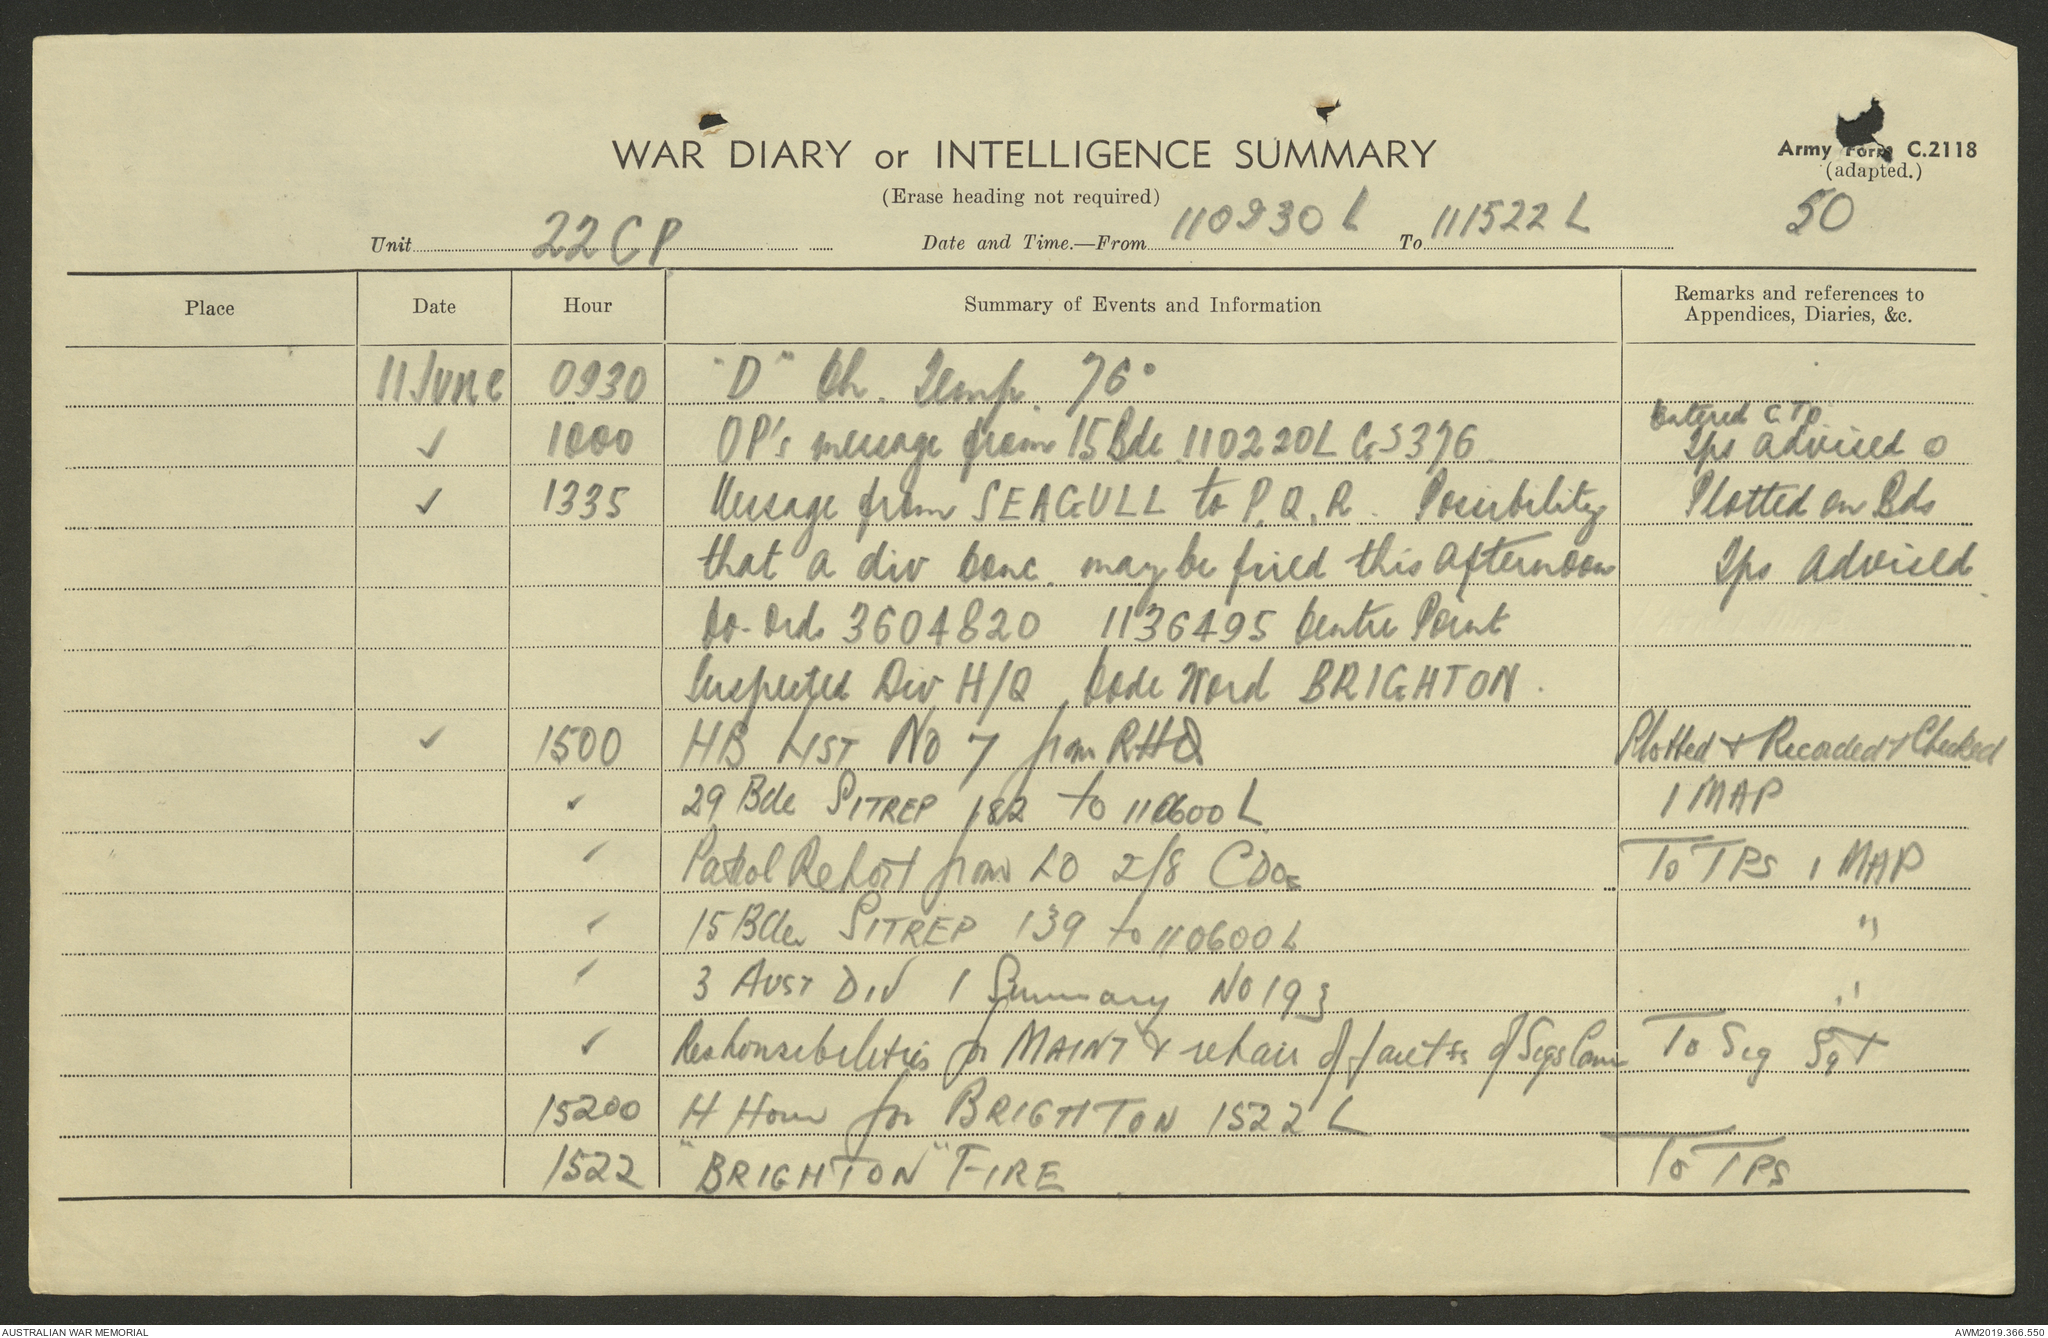 WAR DIARY or INTELLIGENCE SUMMARY
Army Form C.2118
(adapted.)
(Erase heading not required)
50
Unit 22 CP Date and Time.—From 110930 L To 111522 L
Place Date Hour Summary of Events and Information Remarks and references to Appendices, Diaries, &c.
11 June 0930 "D" Ch. Temp. 76°
✓ 1000 OP's message from 15 Bde 110220L GS376 Entered CTP
Tps advised
✓ 1335 Message from SEAGULL to P.Q.R. Possibility Plotted on Bds
that a div conc. may be fired this afternoon Tps advised
Co-ords 3604820 1136495 Centre Point
Suspected Div H/Q Code Word BRIGHTON.
✓ 1500 HB LIST No 7 from RHQ Plotted & Recorded & Checked
✓ 29 Bde SITREP 182 to 110600 L 1 MAP
✓ Patrol Report from LO 2/8 CDO To TPS 1 MAP
✓ 15 Bde SITREP 139 to 110600 L "
✓ 3 AUST DIV I Summary No 193 "
✓ Responsibilities for MAINT & repair of of Sigs To Sig Sgt
15200 H Hour for BRIGHTON 1522 L
1522 "BRIGHTON" FIRE To TPS
AUSTRALIAN WAR MEMORIAL
AWM2019.366.550